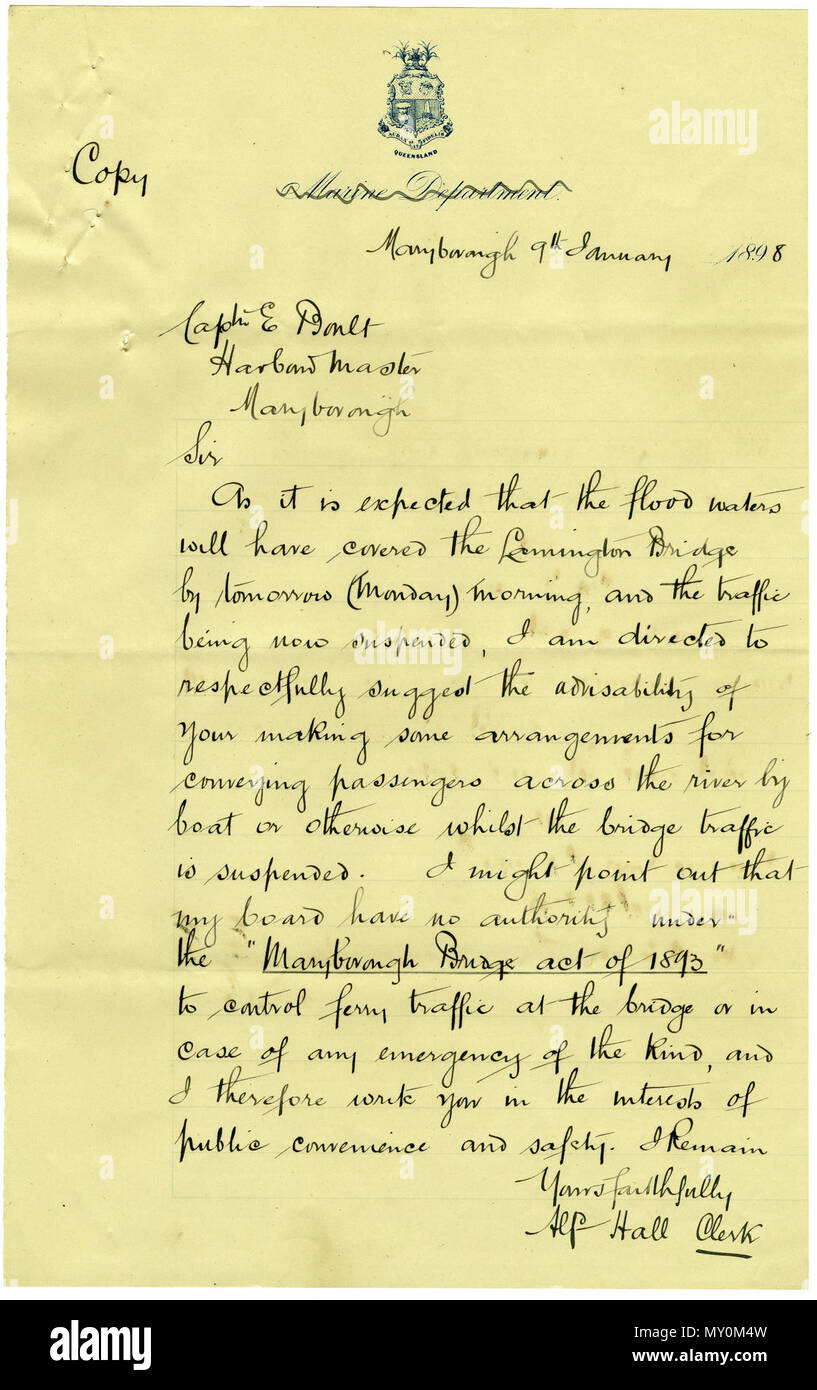 AUDAX AT FIDELIS
QUEENSLAND
Copy
Marine Department.
Maryborough 9th January 1898
Captn E Boult
Harbour Master
Maryborough
Sir
As it is expected that the flood waters
will have covered the Lamington Bridge
by tomorrow (Monday) morning, and the traffic
being now suspended, I am directed to
respectfully suggest the advisability of
Your making some arrangements for
conveying passengers across the river by
boat or otherwise whilst the bridge traffic
is suspended. I might point out that
my board have no authority under
the "Maryborough Bridge act of 1893"
to control ferry traffic at the bridge or in
case of any emergency of the kind, and
I therefore write you in the interests of
public convenience and safety. I Remain
Yours faithfully
Alf Hall Clerk
alamy
alamy
alamy
alamy
a
a
a
a
alamy
Image ID: MY0M4W
www.alamy.com